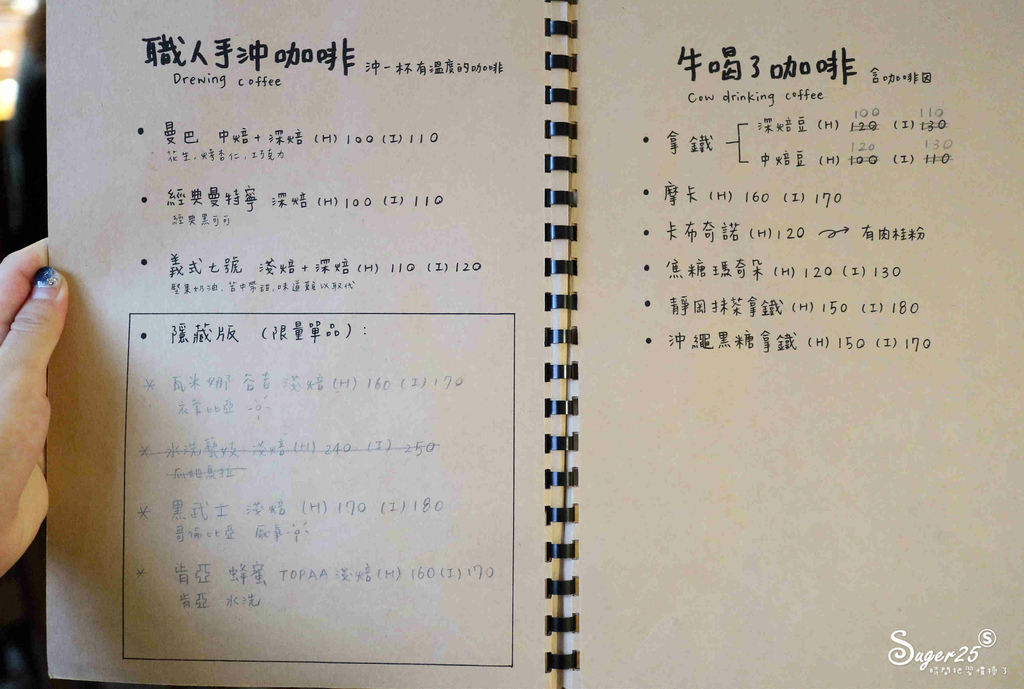 職人手沖咖啡 沖一杯有溫度的咖啡
Drewing coffee
• 曼巴 中焙+深焙 (H) 100 (I) 110
花生,烤杏仁,巧克力
• 經典曼特寧 深焙 (H) 100 (I) 110
經典黑可可
• 義式七號 淺焙+深焙 (H) 110 (I) 120
堅果奶油,苦中帶甜,味道難以取代
• 隱藏版 (限量單品):
* 瓦米娜 谷吉 淺焙 (H) 160 (I) 170
衣索比亞
* 水洗藝妓 淺焙 (H) 240 (I) 250
* 黑武士 淺焙 (H) 170 (I) 180
哥倫比亞 厭氧
* 肯亞 蜂蜜 TOPAA 淺焙 (H) 160 (I) 170
肯亞 水洗
牛喝了咖啡 含咖啡因
Cow drinking coffee
100 110
• 拿鐵 深焙豆 (H) 120 (I) 130
120 130
中焙豆 (H) 100 (I) 110
• 摩卡 (H) 160 (I) 170
• 卡布奇諾 (H) 120 有肉桂粉
• 焦糖瑪奇朵 (H) 120 (I) 130
• 靜岡抹茶拿鐵 (H) 150 (I) 180
• 沖繩黑糖拿鐵 (H) 150 (I) 170
Suger25 S
時間把習慣換了